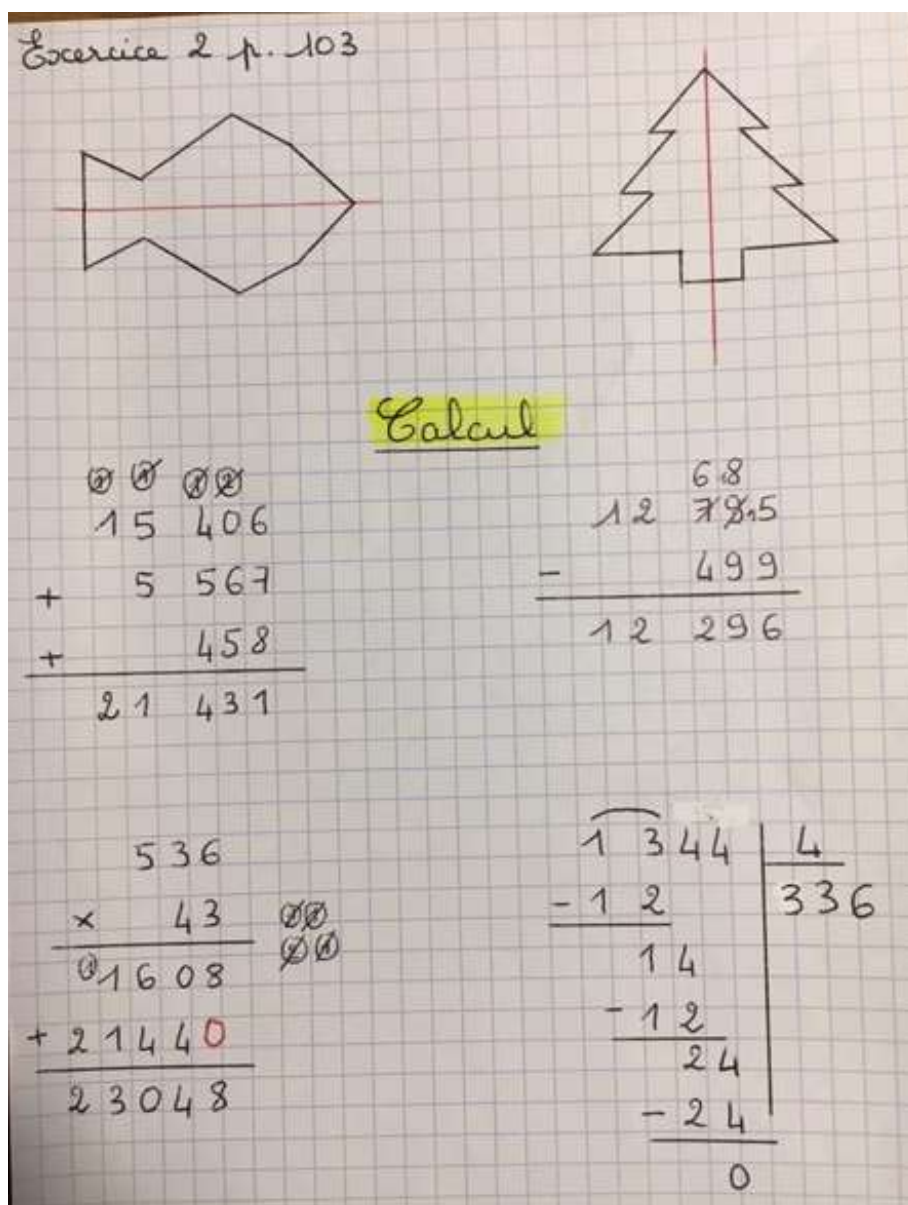 Exercice 2 p. 103
Calcul
15 406
+ 5 567
+ 458
21 431
68
12 7815
- 499
12 296
536
x 43
11608
+ 21440
23048
1 344 4
- 12 336
14
- 12
24
- 24
0